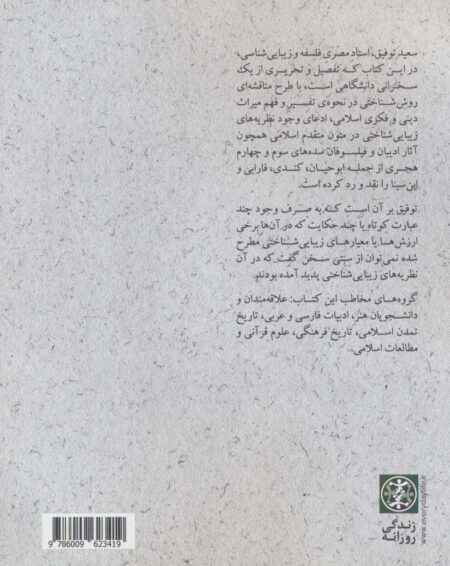 سعید توفیق، استاد مصری فلسفه و زیبایی‌شناسی،
در این کتاب که تفصیل و تحریری از یک
سخنرانی دانشگاهی است، با طرح مناقشه‌ای
روش‌شناختی در نحوه‌ی تفسیر و فهم میراث
دینی و فکری اسلامی، ادعای وجود نظریه‌های
زیبایی‌شناختی در متون متقدم اسلامی همچون
آثار ادیبان و فیلسوفان سده‌های سوم و چهارم
هجری از جمله ابوحیان، کندی، فارابی و
ابن‌سینا را نقد و رد کرده است.
توفیق بر آن است که به صرف وجود چند
عبارت کوتاه یا چند حکایت که در آن‌ها برخی
ارزش‌ها یا معیارهای زیبایی‌شناختی مطرح
شده نمی‌توان از سنتی سخن گفت که در آن
نظریه‌های زیبایی‌شناختی پدید آمده بودند.
گروه‌های مخاطب این کتاب: علاقه‌مندان و
دانشجویان هنر، ادبیات فارسی و عربی، تاریخ
تمدن اسلامی، تاریخ فرهنگی، علوم قرآنی و
مطالعات اسلامی.
www.everydaylife.ir
زندگی
روزانه
9 786009 623419